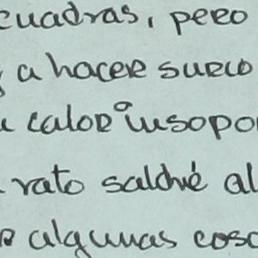 cuadras, pero
a hacer surco
calor insopo
rato saldré al
algunas cosa